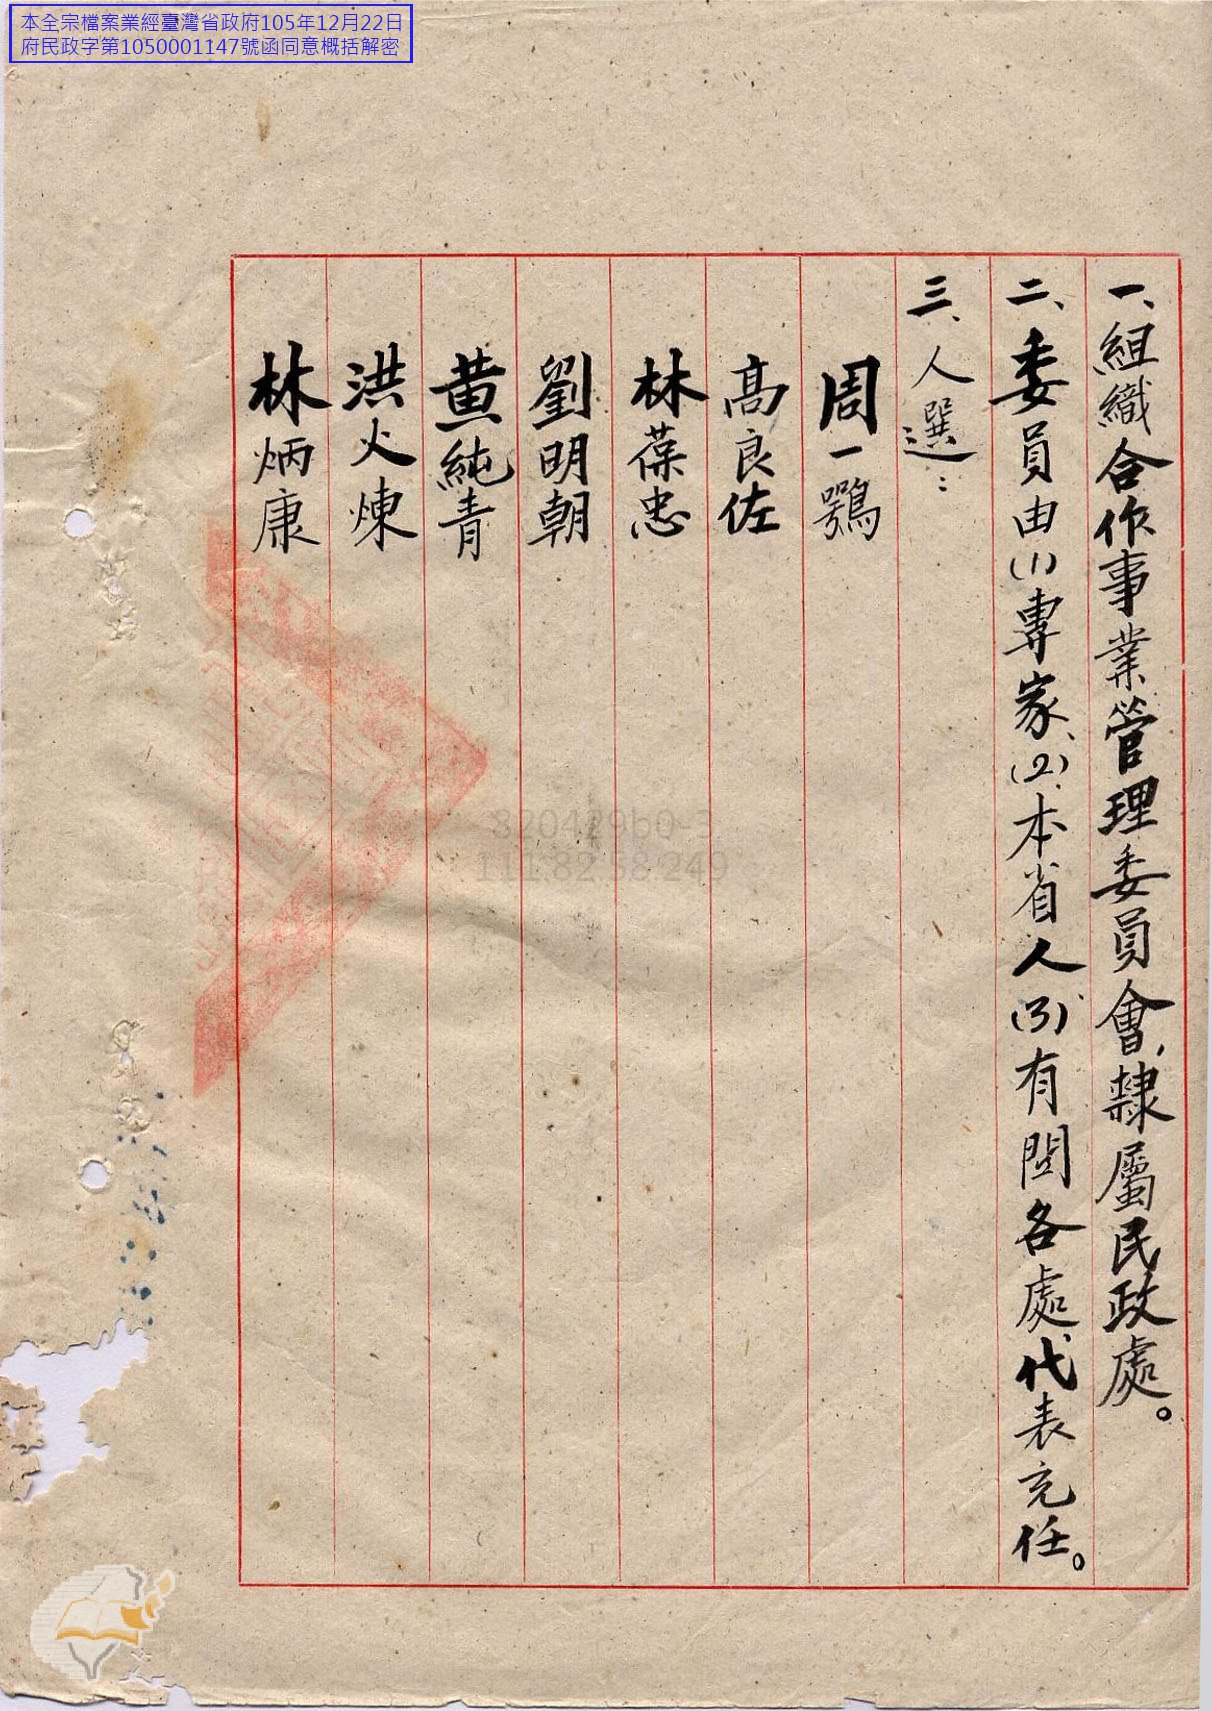 本全宗檔案業經臺灣省政府105年12月22日
府民政字第1050001147號函同意概括解密
一、組織合作事業管理委員會，隸屬民政處。
二、委員由(1)專家、(2)本省人(3)有関各處代表充任。
三、人選：
周一鶚
高良佐
林葆忠
劉明朝
黃純青
洪火煉
林炳康
820429b0-3
111.82.58.249